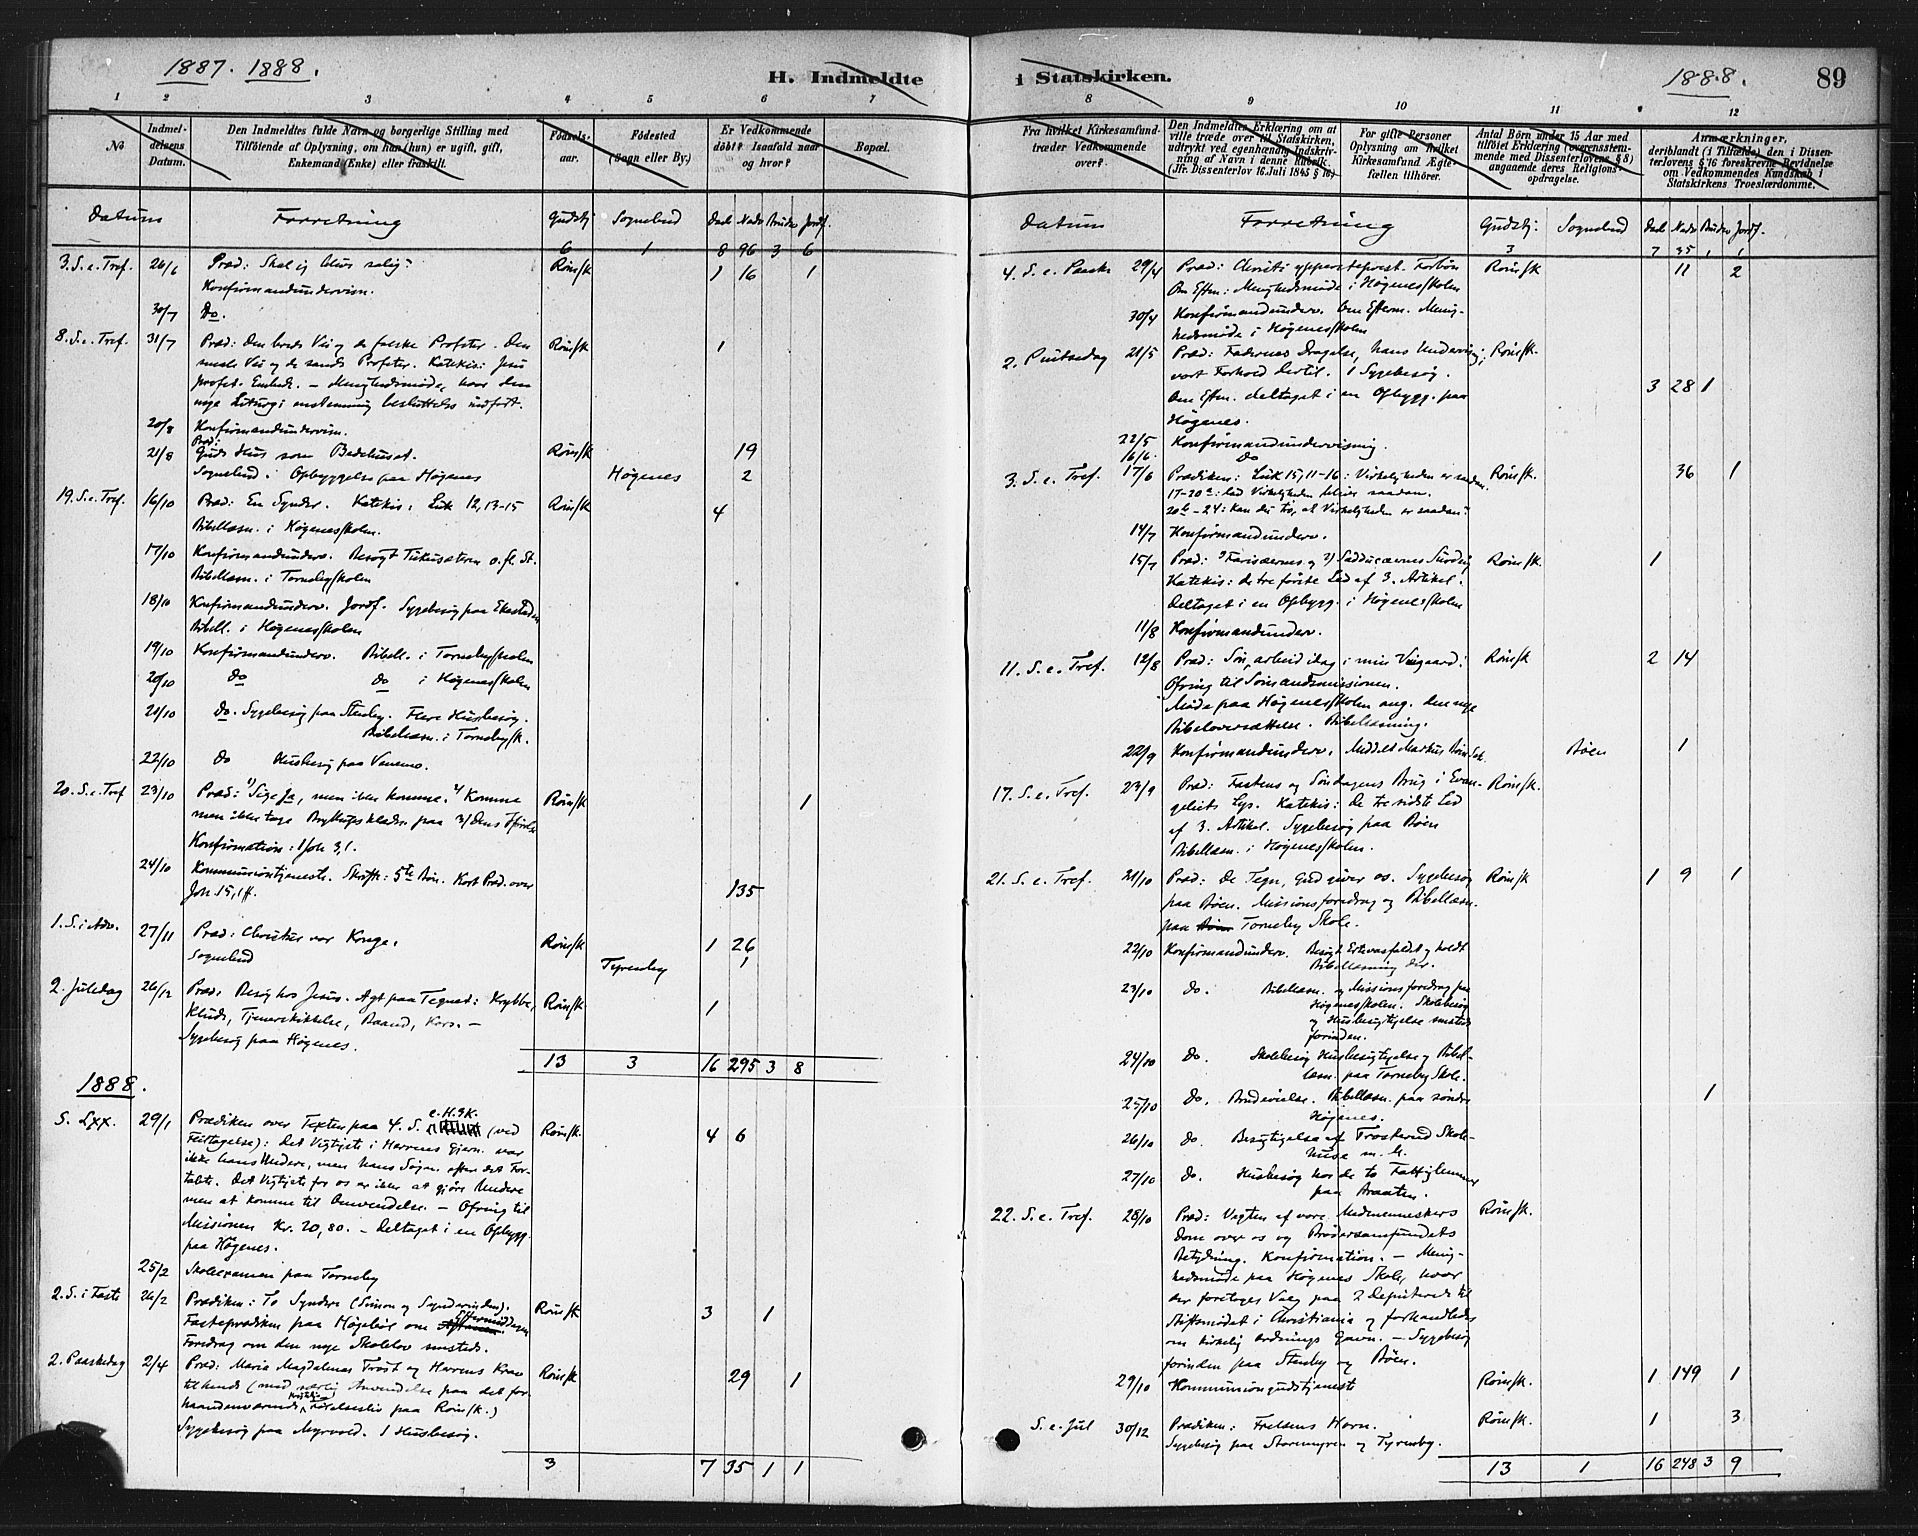 1887. 1888.
H. Indmeldte
1 2 3 4 5 6 7
No
Indmel-
delsens
Datum.
Den Indmeldtes fulde Navn og borgerlige Stilling med
Tilföiende af Oplysning, om han (hun) er ugift, gift,
Enkemand (Enke) eller fraskilt.
Födsels-
aar.
Födested
(Sogn eller By.)
Er Vedkommende
döbt? Isaafald naar
og hvor?
Bopæl.
Datum Forretning Gudstj Sognebud Daab Nadv Brudev Jordf.
6 1 8 96 3 6
3. S. e. Tref. 26/6 Præd: Skal jeg blive salig? Röm/sk 1 16 1
Konfirmandundervisn.
30/7 Do.
8. S. e. Tref. 31/7 Præd: Den brede Vei og de falske Profeter. Den Röm/sk 1
smale Vei og de sande Profeter. Katekis: Jesu
profet. Embede. – Menighedsmöde, hvor den
nye Liturgi enstemmig besluttedes indfört.
20/8 Konfirmandundervisn.
Præd:
21/8 Guds Hus som Bedehuset. Röm/sk 19
Sognebud. Opbyggelse paa Högenes Högenes 2
19. S. e. Tref. 16/10 Præd: En Synder. Katekis: Luk 12,13-15 Röm/sk 4
Bibellæsn. i Högenesskolen.
17/10 Konfirmandunderv. Besögt o. fl. St.
Bibellæsn. i Tornebyskolen
18/10 Konfirmandunderv. Jordf. Sygebesög paa
Bibell. i Högenesskolen
19/10 Konfirmandunderv. Bibell. i Tornebyskolen
20/10 Do Do i Högenesskolen
21/10 Do. Sygebesög paa Stenby. Flere Husbesög.
Bibellæsn. i Tornebysk.
22/10 Do Husbesög paa
20. S. e. Tref 23/10 Præd: 1) Sige Ja, men ikke komme. 2) Komme Röm/sk 1
men ikke tage Bryllupsklæder paa 3)
Konfirmation: 1 Joh 3,1.
24/10 Kommunionstjeneste. Skrift: 5te Bön. Kort Præd. over
Joh 15,1 ff. 135
1. S. i Adv. 27/11 Præd: Christus vor Konge. Röm/sk 1 26
Sognebud Tyrenby 1
2. Juledag 26/12 Præd: Besög hos Jesus. Agt paa Tegnet: Krybbe, Röm/sk 1
Klude, Tjenerskikkelse, Baand, Kors. –
Sygebesög paa Högenes.
13 3 16 295 3 8
1888.
S. Lxx. 29/1 Prædiken over Texten paa 4. S. e. H.3K. (ved Röm/sk. 4 6
Feiltagelse): Det Vigtigste i Herrens Gjern. var
ikke hans Undere, men hans Sögn. efter det For-
tabte. Det Vigtigste for os er ikke at gjöre Undere
men at komme til Omvendelse. – Ofring til
Missionen Kr. 20,80. – Deltaget i en Opbygg.
paa Högenes.
25/2 Skoleexamen paa Torneby
2. S. i Faste 26/2 Prædiken: To Syndere (Simon og Synderinden). Röm/sk 3 1
Fasteprædiken paa Högeböl om Eftermiddagen
Foredrag om den nye Skolelov smsteds.
2. Paaskedag 2/4 Præd: Maria Magdalenas Tröst og Herrens Krav Röm/sk 29 1
til hende (med særlig Anvendelse paa det for-
haandenværende paa Röm/sk.)
Sygebesög paa Myrvold. 1 Husbesög.
3 7 35 1 1
i Statskirken.
1888. 89
8 9 10 11 12
Fra hvilket Kirkesamfund
træder Vedkommende
over?
Den Indmeldtes Erklæring om at
ville træde over til Statskirken,
udtrykt ved egenhændig Indskriv-
ning af Navn i denne Rubrik.
(Jfr. Dissenterlov 16. Juli 1845 § 16)
For gifte Personer
Oplysning om hvilket
Kirkesamfund Ægte-
fællen tilhörer.
Antal Börn under 15 Aar med
tilföiet Erklæring (overensstem-
mende med Dissenterlovens § 8)
angaaende deres Religions-
opdragelse.
Anmærkninger,
deriblandt (i Tilfælde) den i Dissen-
terlovens § 16 foreskrevne Bevidnelse
om Vedkommendes Kundskab i
Statskirkens Troeslærdomme.
Datum Forretning Gudstj: Sognebud Daab Nadv Brudev Jordf.
3 7 35 1 1
4. S. e. Paaske 29/4 Præd: Christi ypperstepræst. Forbön Röm/sk 11 2
Om Eftm: Menighedsmöde i Högenesskolen
30/4 Konfirmandunderv. Om Efterm. Menig-
hedsmöde i Högenesskolen
2. Pintsedag 21/5 Præd: Faderens Dragelse, hans Undervisng, Röm/sk.
vort Forhold dertil. 1 Sygebesög. 3 28 1
Om Eftm. deltaget i en Opbygg. paa
Högenes.
22/5 Konfirmandundervisning.
16/6. Do
3. S. e. Tref. 17/6 Prædiken: Luk 15,11-16: Virkeligheden er saadan. Röm/sk. 36 1
17-20a: lad Virkeligheden blive saadan.
20b-24: kan du tro, at Virkeligheden er saadan?
14/7 Konfirmandunderv.
15/7 Præd: 1) Farisæernes og 2) Sadducæernes Surdeig Röm/sk. 1
Katekis: de tre förste Led af 3. Artikel.
Deltaget i en Opbygg. i Högenesskolen
11/8 Konfirmandunderv.
11. S. e. Tref. 12/8 Præd: Sön, arbeid idag i min Viingaard! Röm/sk 2 14
Ofring til Sömandsmissionen.
Möde paa Högenesskolen ang. den nye
Bibeloversættelse. Bibellæsning.
22/9 Konfirmandunderv. Böen 1
17. S. e. Tref. 23/9 Præd: Fastens og Söndagens Brug i Evan- Röm/sk.
geliets Lys. Katekis: De tre sidste Led
af 3. Artikel. Sygebesög paa Böen
Bibellæsn. i Högenesskolen.
21. S. e. Tref. 21/10 Præd: De Tegn, Gud giver os. Sygebesög Röm/sk 1 9 1
paa Böen. Missionsforedrag og Bibellæsn.
paa Böen Torneby Skole.
22/10 Konfirmandunderv. Besögt og holdt
Bibellæsning der.
23/10 Do. Bibellæsn. og Missionsforedrag paa
Högenesskolen. Skolebesög
og Husbesigtigelse smsteds
forinden.
24/10 Do. Skolebesög Husbesigtigelse og Bibel-
læsn. paa Torneby Skole.
25/10 Do. Brudevielse. Bibellæsn. paa söndre 1
Högenes.
26/10 Do. Besigtigelse af Trosterud Skole-
huse m. M.
27/10 Do. Husbesög hos de to Fattiglemmer
paa Braaten.
22. S. e. Tref. 28/10 Præd: Vegten af vore Medmenneskers Röm/sk.
Dom over os og Brödersamfundets
Betydning. Konfirmation. – Menig-
hedsmöde paa Högenes Skole, hvor
der foretoges Valg paa 2 Deputerede til
Stiftsmödet i Christiania og forhandledes
om kirkelig ordnings Gavn. – Sygebesög
forinden paa Stenby og Böen.
29/10 Kommuniongudstjeneste Röm/sk. 1 149 1
S. e. Jul 30/12 Prædiken: Frelsens Horn. Röm/sk. 1 3
Sygebesög paa Storemyren og Tyrenby.
13 1 16 248 3 9